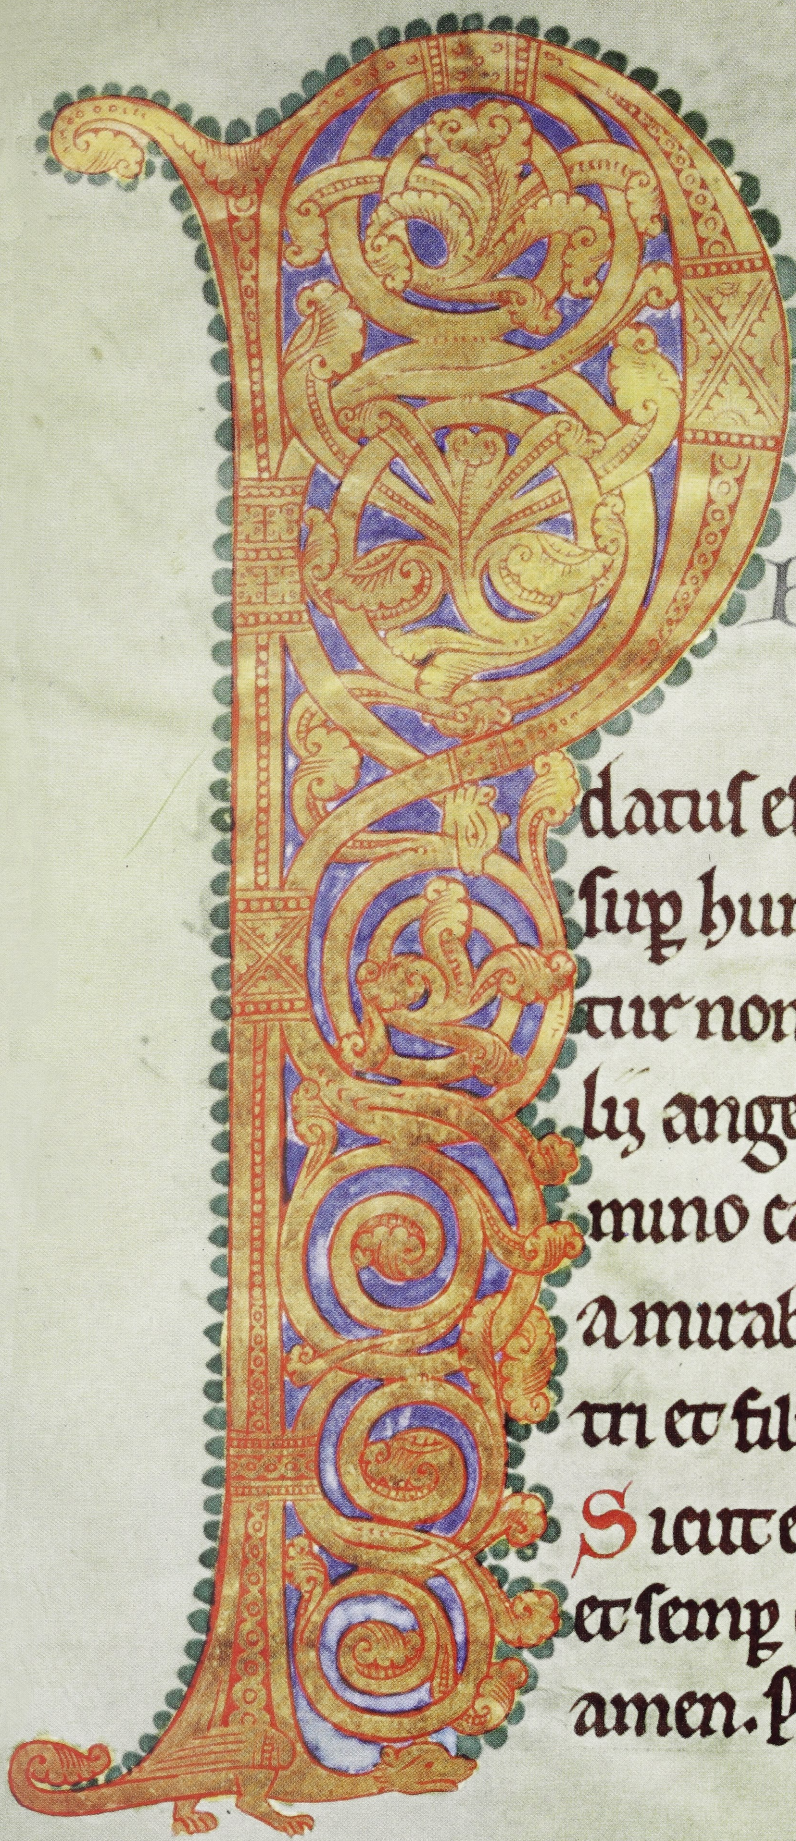 P
datus es
suꝑ hum
tur nom
lij ange
mino ca
a mirab
tri et fili
Sicut e
et semꝑ
amen. P